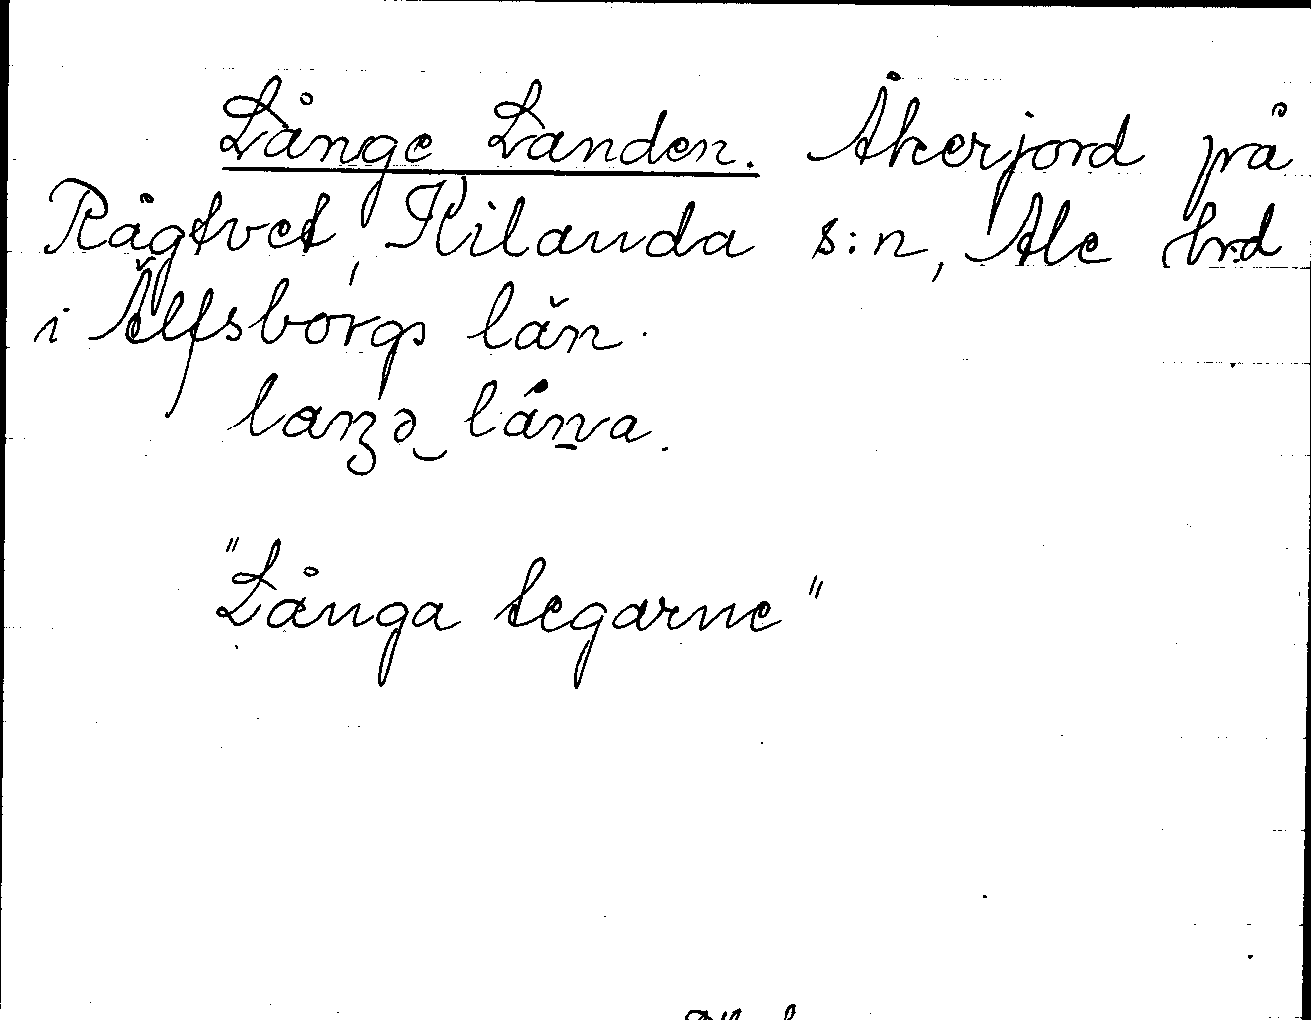 Långe Landen. Åkerjord på
Rågtvet, Kilanda s:n, Ale hrd
i Älfsborgs län.
"Långa tegarne"